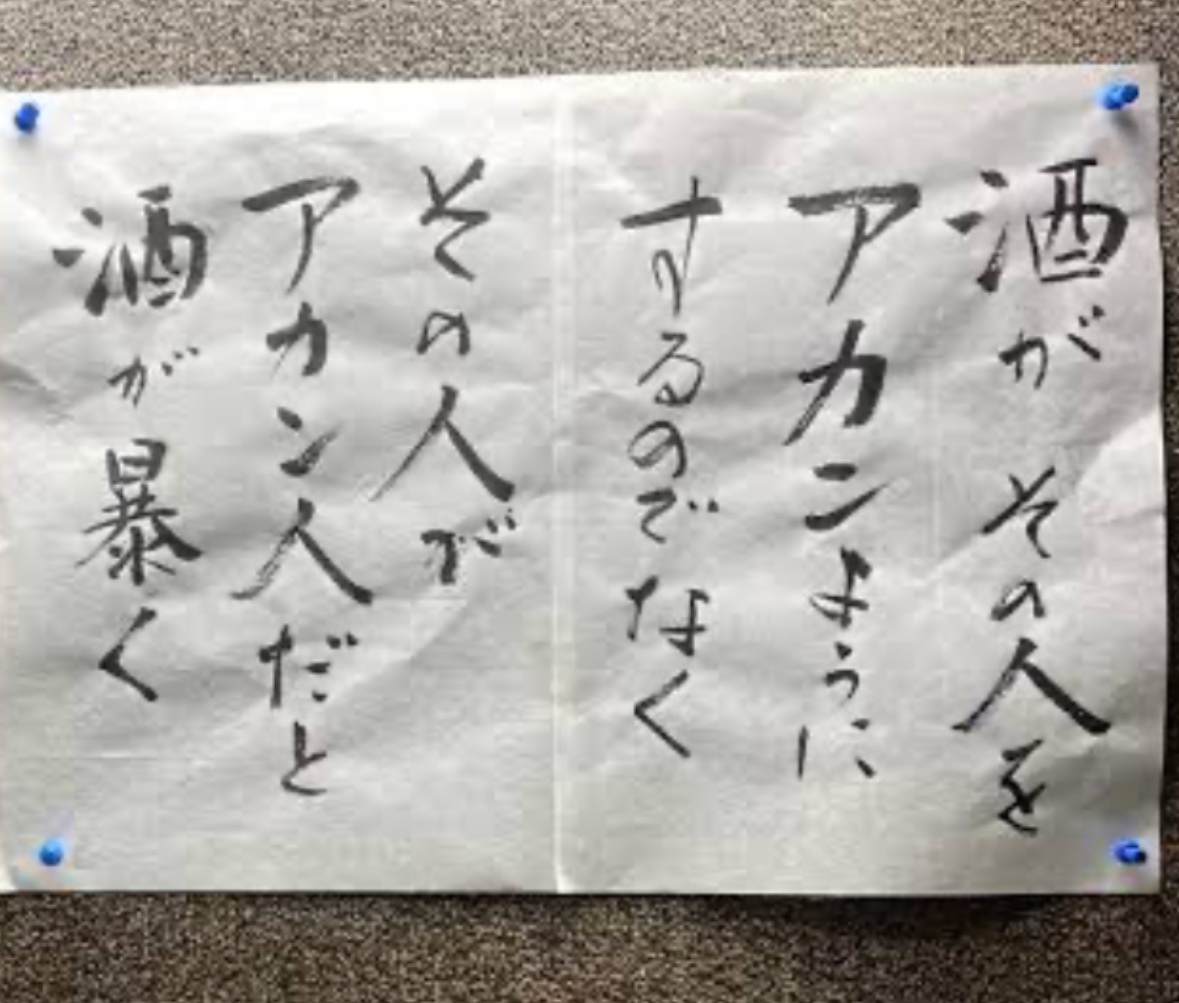 酒が その人を
アカンように
するのでなく
その人が
アカン人だと
酒が暴く